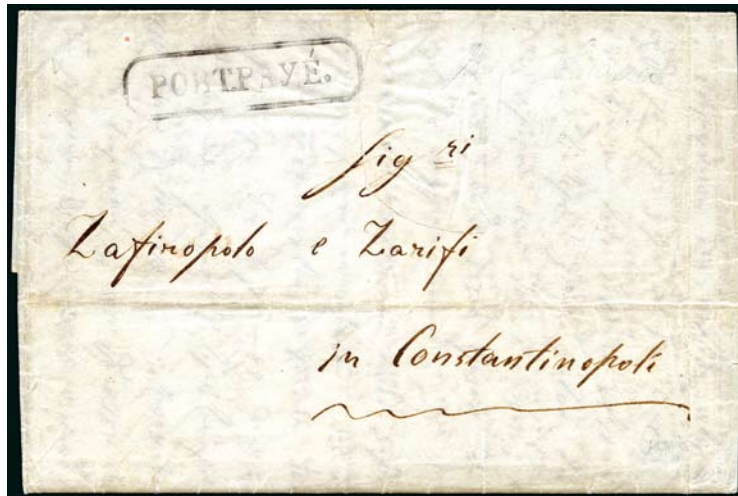 PORT.PAYÉ.
Sig ri
Zafiropolo e Zarifi
in Constantinopoli